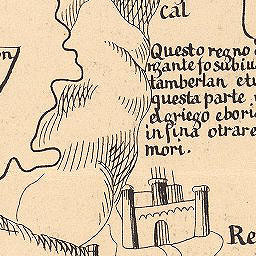 cal
on
Questo regno
rgante fo subiu
tamberlan et u
questa parte
el griego eboria
in fina otrare
mori.
Re